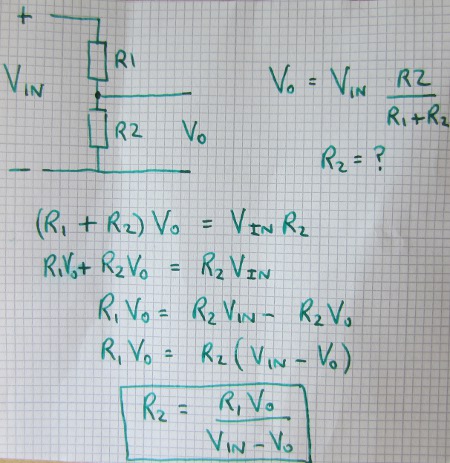 +
R1
VIN
R2 Vo
Vo = VIN R2 / R1 + R2
R2 = ?
(R1 + R2) Vo = VIN R2
R1Vo + R2Vo = R2 VIN
R1 Vo = R2 VIN - R2 Vo
R1 Vo = R2 (VIN - Vo)
R2 = R1 Vo / VIN - Vo